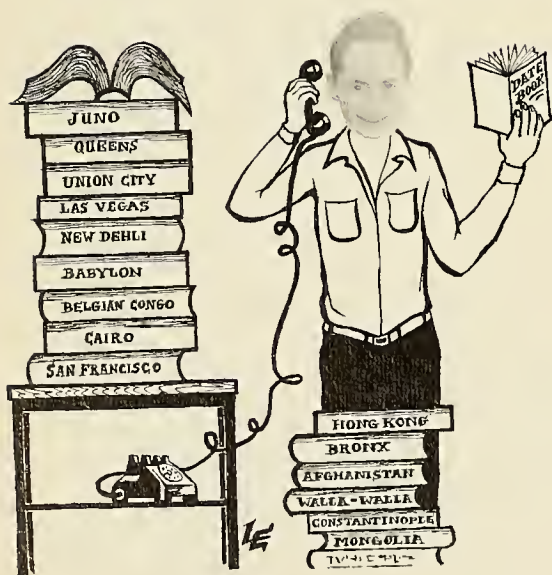 JUNO
QUEENS
UNION CITY
LAS VEGAS
NEW DEHLI
BABYLON
BELGIAN CONGO
CAIRO
SAN FRANCISCO
DATE
BOOK
HONG KONG
BRONX
AFGHANISTAN
WALLA-WALLA
CONSTANTINOPLE
MONGOLIA
LE